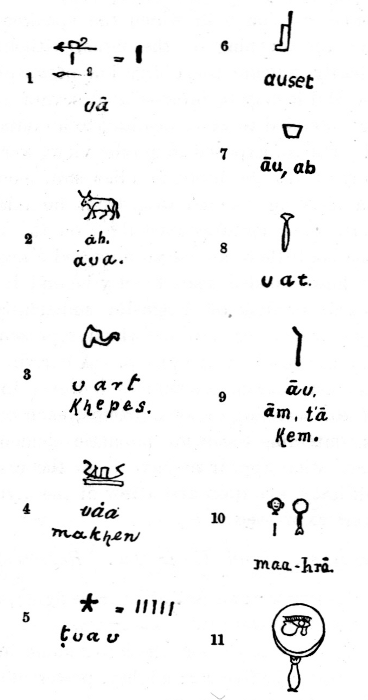 1
= I
uā
2
ȧh.
ȧua.
3
uart
Khepes.
4
uȧa
makhen
5
* = IIIII
ṭuau
6
auset
7
āu, ab
8
uat.
9
āu.
ām, t'ā
Kem.
10
maa-hrā.
11